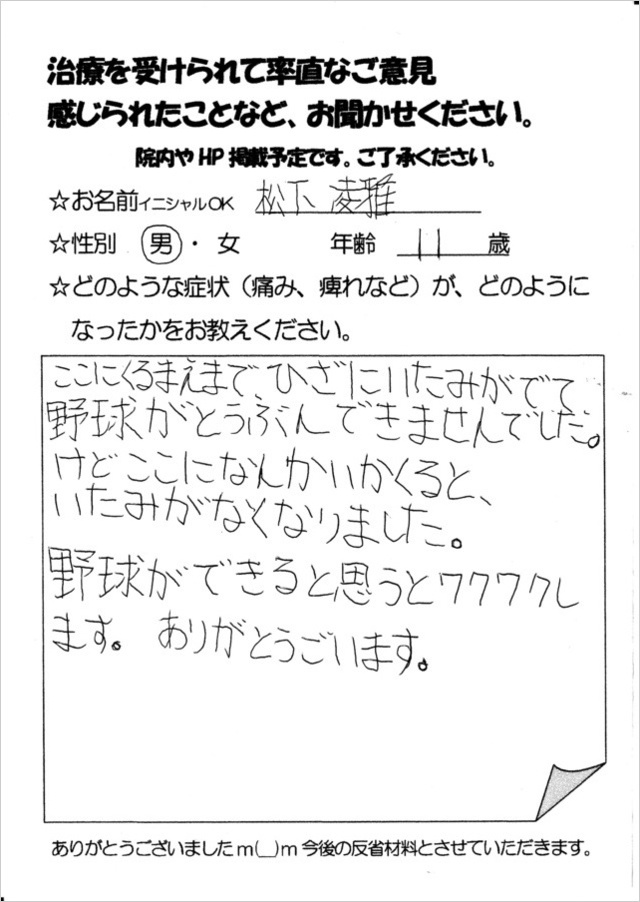 治療を受けられて率直なご意見
感じられたことなど、お聞かせください。
院内やHP掲載予定です。ご了承ください。
☆お名前イニシャルOK 松下 凌雅
☆性別 男・女 年齢 11 歳
☆どのような症状（痛み、痺れなど）が、どのように
なったかをお教えください。
ここにくるまえまで、ひざにいたみがでて
野球がとうぶんできませんでした。
けどここになんかいかくると、
いたみがなくなりました。
野球ができると思うとワクワクし
ます。ありがとうございます。
ありがとうございましたm(__)m今後の反省材料とさせていただきます。